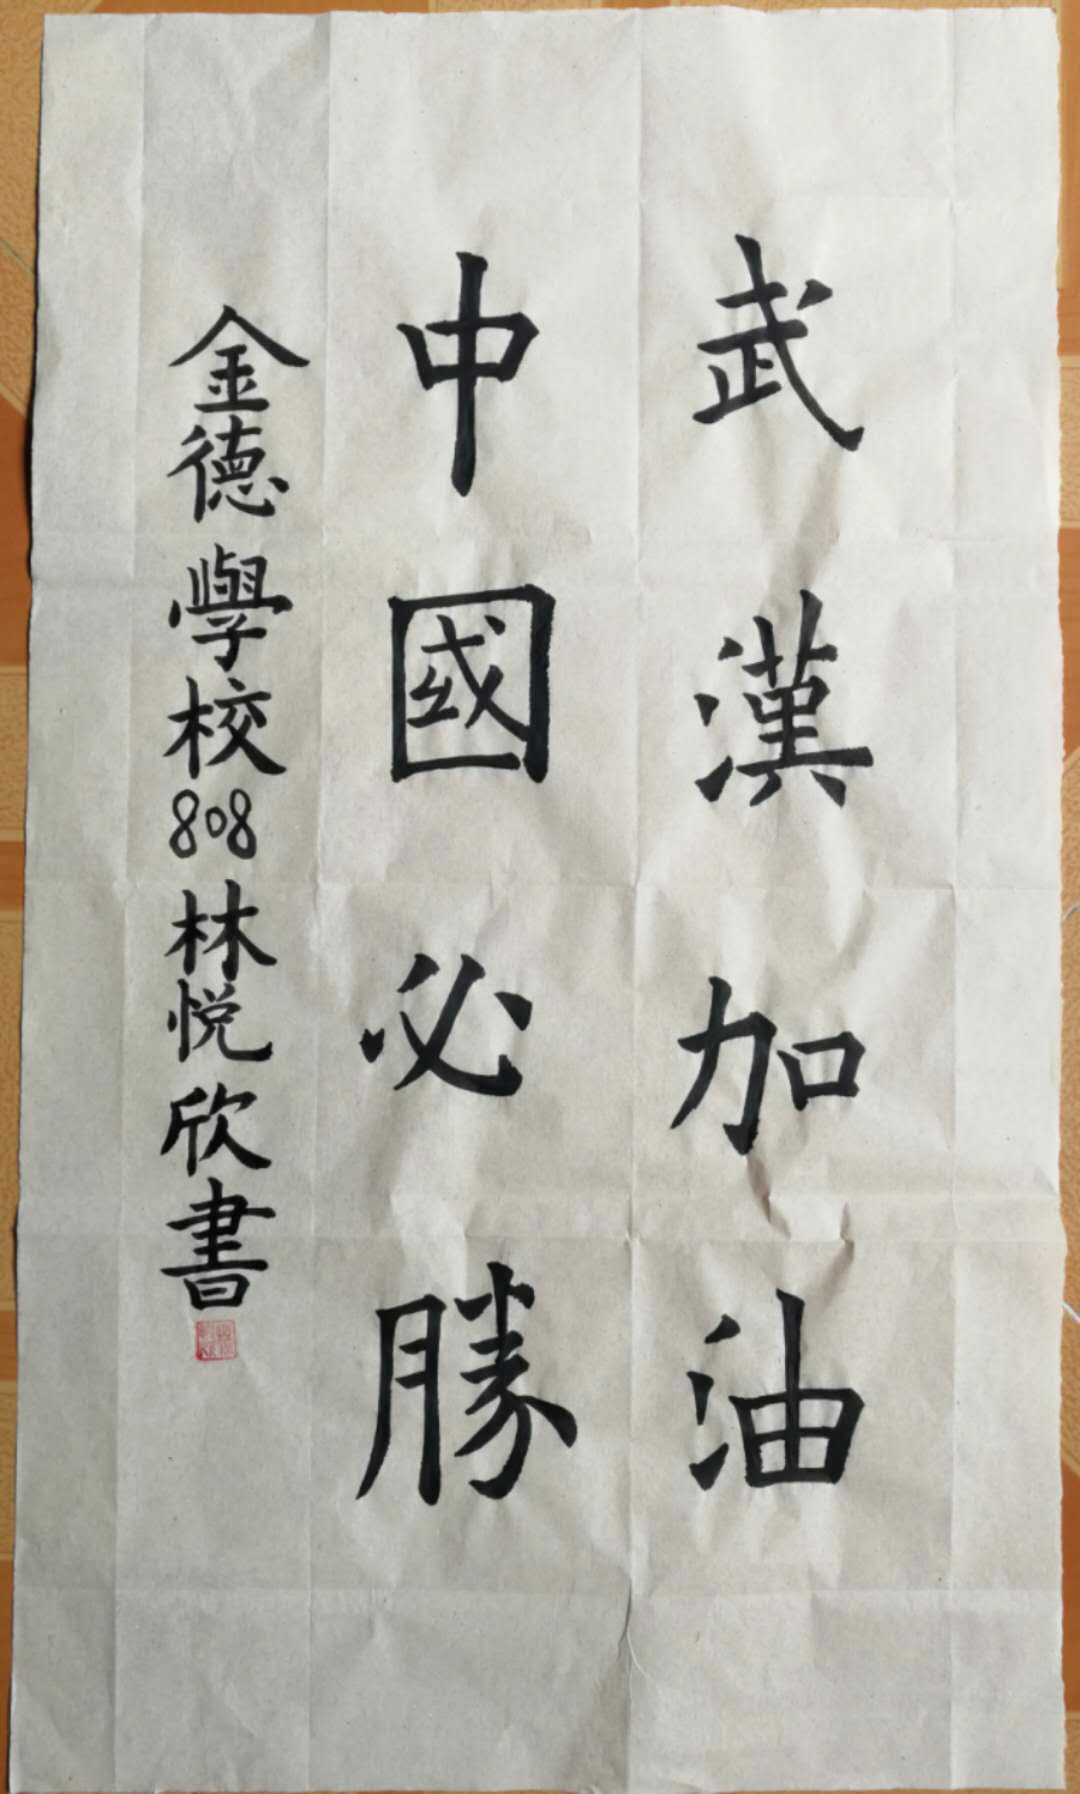 武漢加油
中國必勝
金德學校808林悦欣書